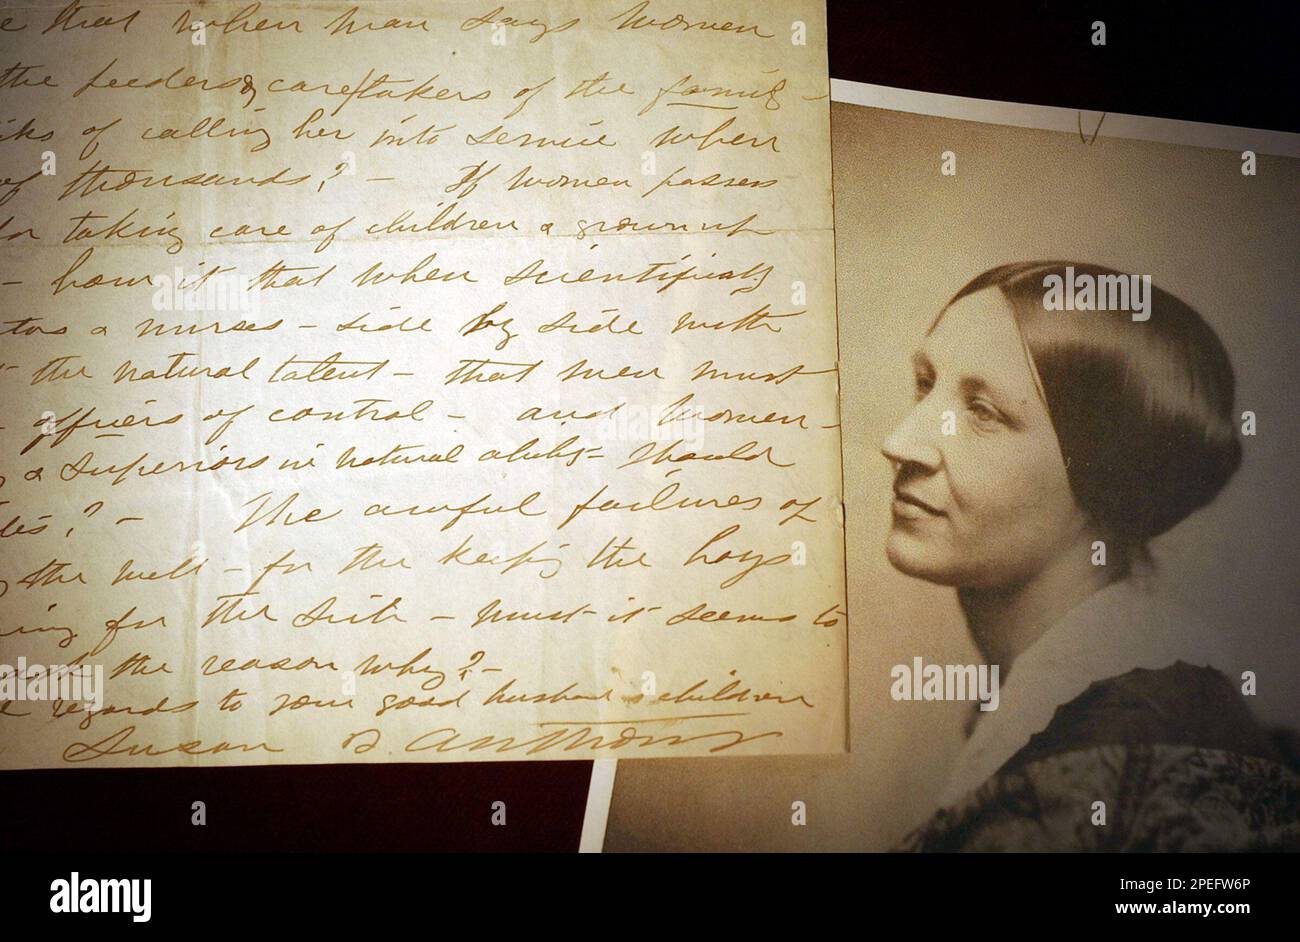 e that when man says women
the feeders & care takers of the family -
of calling her into service when
of thousands? - If women possess
for taking care of children & grown up
- how is it that when scientifically
& nurses - side by side with
the natural talent - that men must
officers of control - and women -
& superiors in natural ability - should
? - The awful failures of
the well - for the keeping the boys
for the sick - must it seems to
ask the reason why? -
regards to your good husband & children
Susan B. Anthony
alamy
Image ID: 2PEFW6P
www.alamy.com